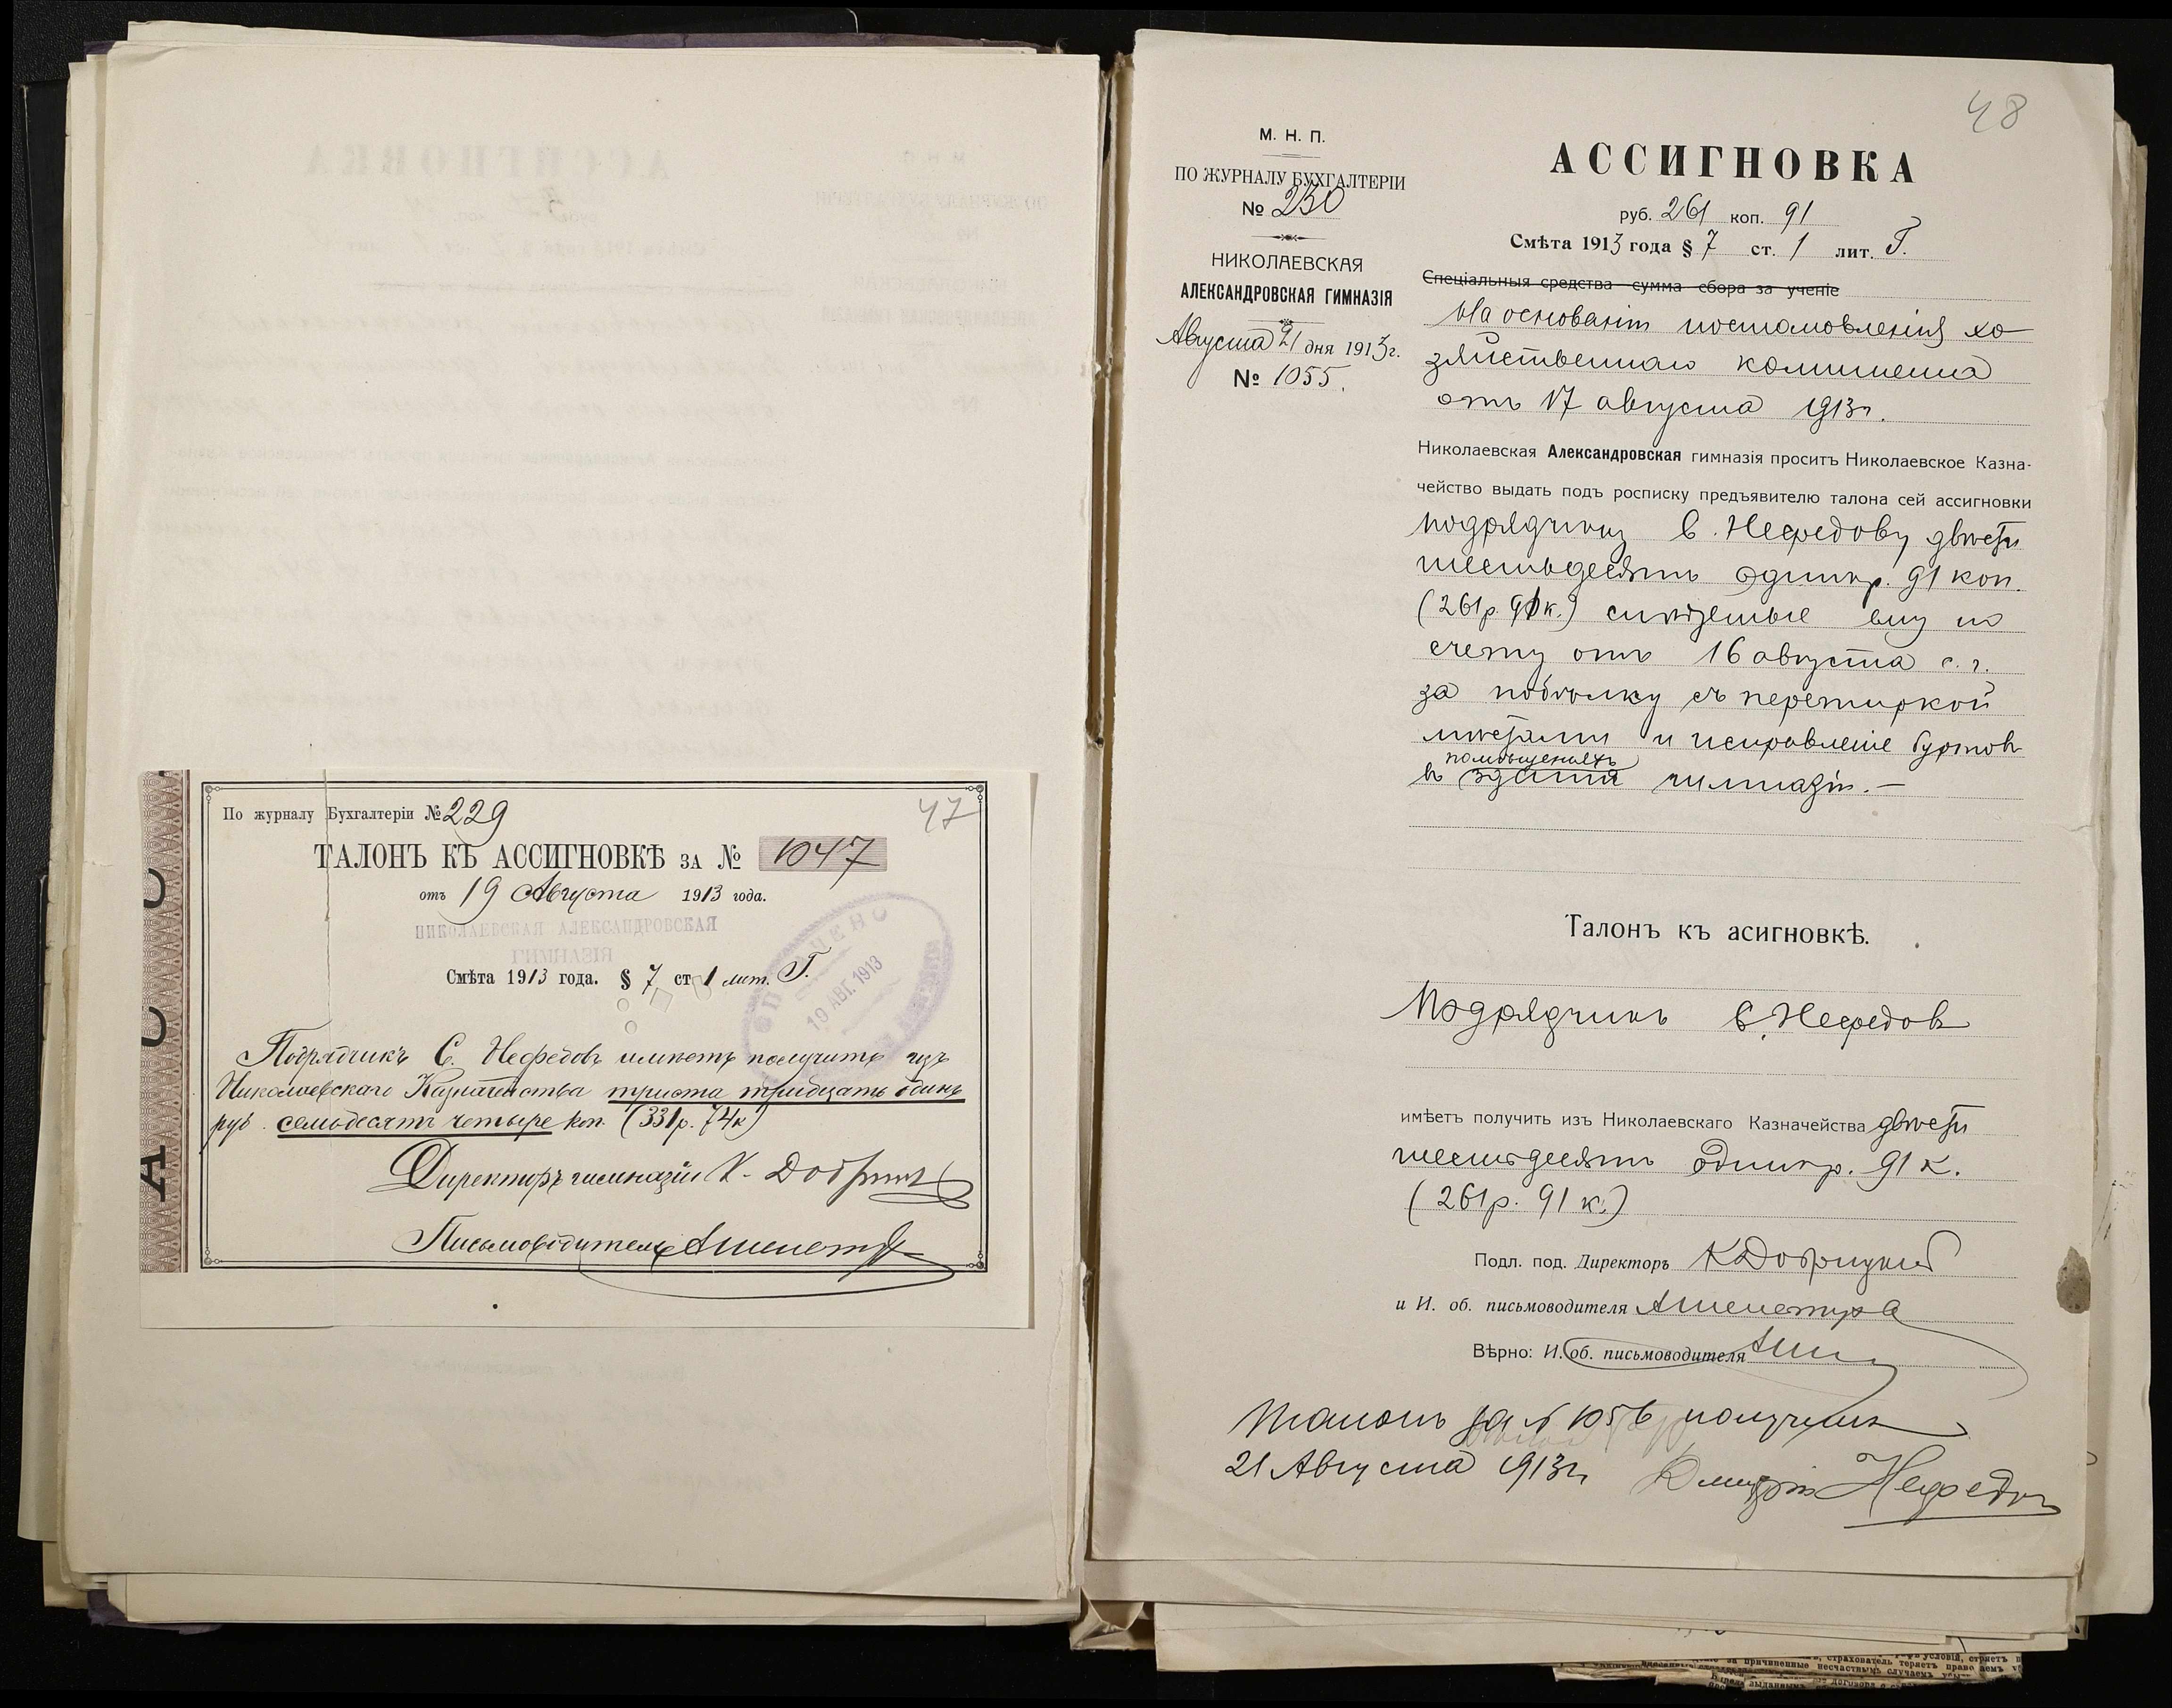 По журналу Бухгалтеріи № 229
47
ТАЛОНЪ КЪ АССИГНОВКѢ ЗА № 1047
отъ 19 Августа 1913 года.
НИКОЛАЕВСКАЯ АЛЕКСАНДРОВСКАЯ
ГИМНАЗІЯ
Смѣта 1913 года. § 7 ст 1 лит. Г.
19 АВГ. 1913
Подрядчикъ С. Нефедовъ имѣетъ получить изъ
Николаевскаго Казначейства триста тридцать одинъ
руб. семьдесятъ четыре коп. (331р. 74к)
Директоръ гимназіи К.
Письмоводитель
48
М. Н. П.
ПО ЖУРНАЛУ БУХГАЛТЕРІИ
№ 230
НИКОЛАЕВСКАЯ
АЛЕКСАНДРОВСКАЯ ГИМНАЗІЯ
Августа 21 дня 1913г.
№ 1055.
АССИГНОВКА
руб. 261 коп. 91
Смѣта 1913 года § 7 ст. 1 лит. Г.
Спеціальныя средства сумма сбора за ученіе
На основаніи постановленія хо
зяйственнаго комитета
отъ 17 августа 1913г.
Николаевская Александровская гимназія проситъ Николаевское Казна-
чейство выдать подъ росписку предъявителю талона сей ассигновки
подрядчику С. Нефедову двѣсти
шестьдесятъ одинъ р. 91 коп.
(261р. 91к.) слѣдуемые ему по
счету отъ 16 августа с. г.
за побѣлку съ перетиркой
мѣстами и исправленіе буртовъ
помѣщеніяхъ
въ зданіи гимназіи. —
Талонъ къ асигновкѣ.
Подрядчикъ С. Нефедовъ
имѣетъ получить изъ Николаевскаго Казначейства двѣсти
шестьдесятъ одинъ р. 91 к.
(261р. 91 к.)
Подл. под. Директоръ К Добрицкій
и И. об. письмоводителя
Вѣрно: И. об. письмоводителя
Талонъ за № 1056 получилъ
21 Августа 1913г. Дмитрій Нефедовъ